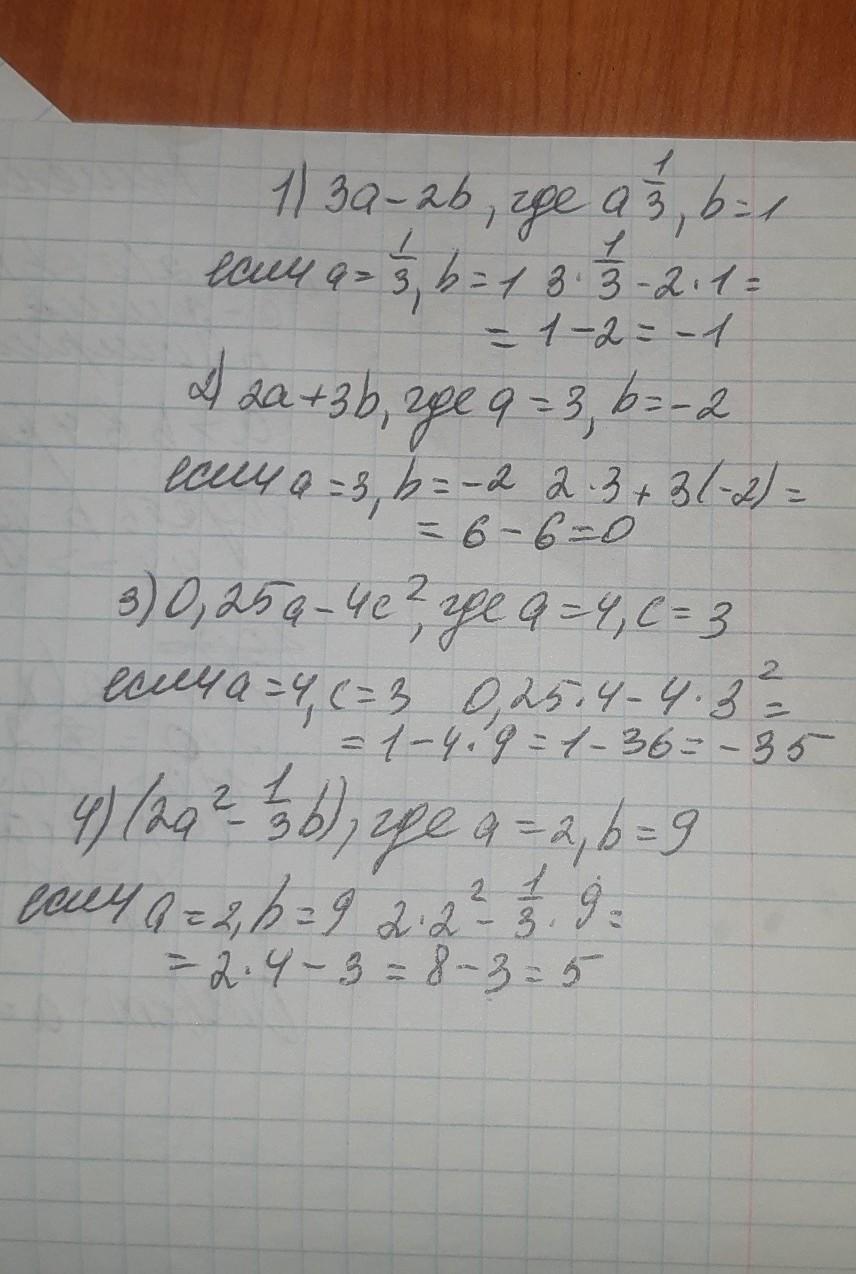 1) 3a - 2b, где a 1/3, b = 1
если a = 1/3, b = 1 3 · 1/3 - 2 · 1 =
= 1 - 2 = -1
2) 2a + 3b, где a = 3, b = -2
если a = 3, b = -2 2 · 3 + 3(-2) =
= 6 - 6 = 0
3) 0,25a - 4c², где a = 4, c = 3
если a = 4, c = 3 0,25 · 4 - 4 · 3² =
= 1 - 4 · 9 = 1 - 36 = -35
4) (2a² - 1/3 b), где a = 2, b = 9
если a = 2, b = 9 2 · 2² - 1/3 · 9 =
= 2 · 4 - 3 = 8 - 3 = 5